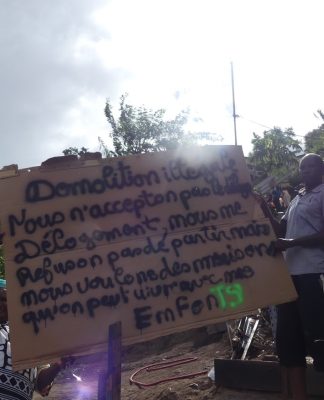 Demolition illegalle
Nous n'accepton pas le
Délogement nous me
Refuson pas dé partir mais
nous voulons des maisons
qu'on peut vivre avec nos
EnFonTS